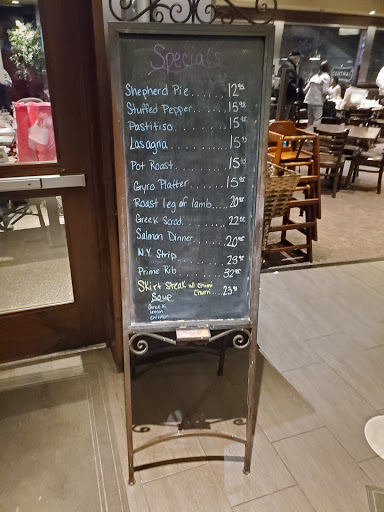 Specials
Shepherd Pie......12.95
Stuffed Pepper.....15.95
Pastitiso.........15.95
Lasagna..........15.95
Pot Roast.........15.95
Gyro Platter......15.95
Roast leg of lamb...20.95
Greek Scrod.......22.95
Salmon Dinner.....20.95
N.Y. Strip.........23.95
Prime Rib.........32.95
Skirt Steak w/
23.95
Soup
Lemon
Chicken
CENTRAL